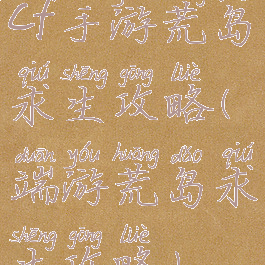 Cf手游荒岛
qiú shēng gōng lüè
求生攻略(
duān yóu huāng dǎo qiú
端游荒岛求
shēng gōng lüè
生攻略)